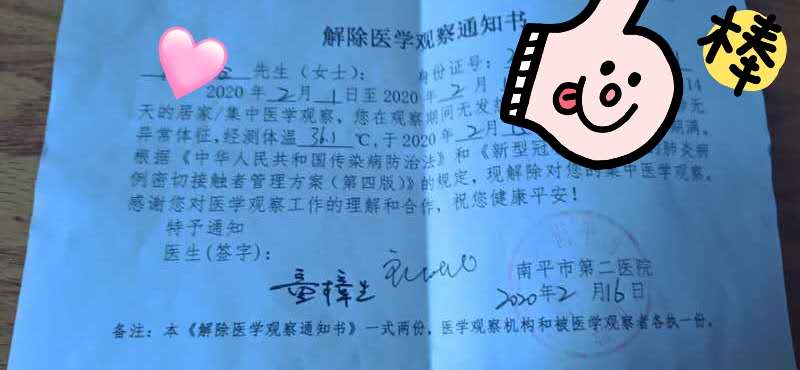 解除医学观察通知书
棒
先生（女士）： 身份证号：
2020年2月1日至2020年2月 14
天的居家/集中医学观察，您在观察期间无发 无
异常体征，经测体温36.1℃，于2020年2月 期满。
根据《中华人民共和国传染病防治法》和《新型冠 肺炎病
例密切接触者管理方案（第四版）》的规定，现解除对您的集中医学观察。
感谢您对医学观察工作的理解和合作，祝您健康平安！
特予通知
医生(签字)：
南平市第二医院
2020年2月16日
备注：本《解除医学观察通知书》一式两份，医学观察机构和被医学观察者各执一份。